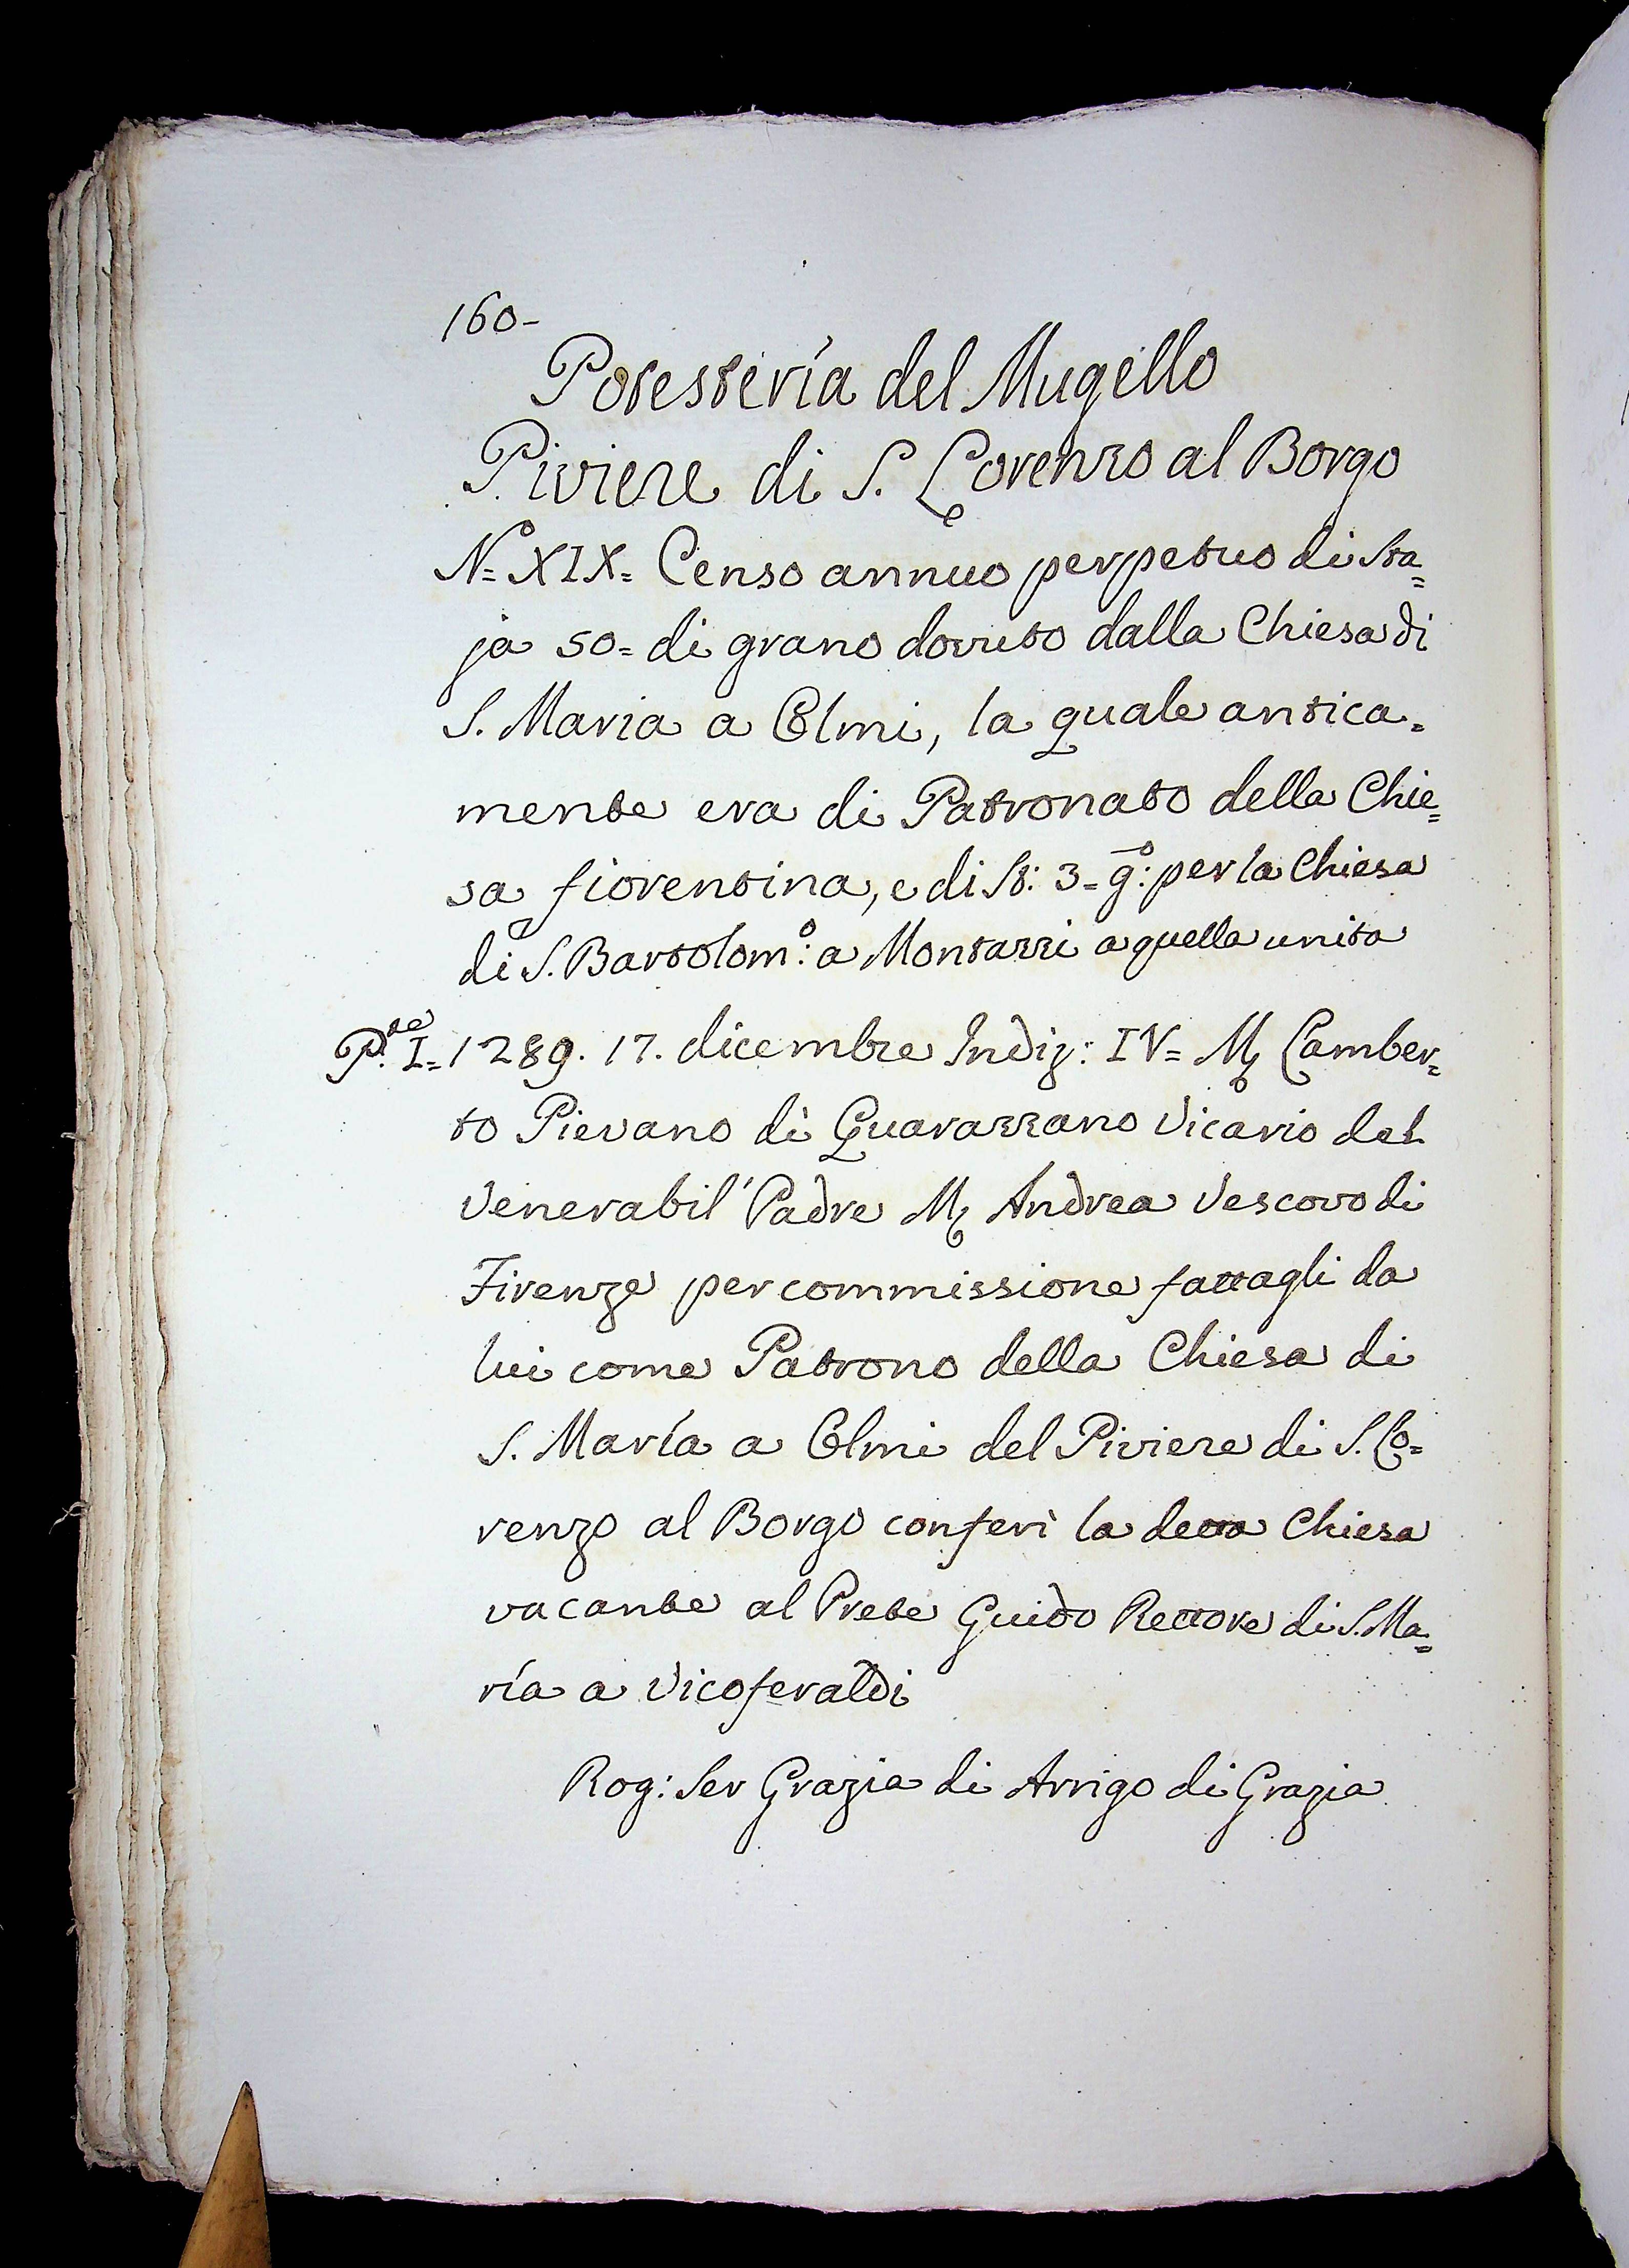 160-
Potestería del Mugello
Piviere di S. Lorenzo al Borgo
N.º XIX= Censo annuo perpetuo di Sta=
ja 50= di grano dovuto dalla Chiesa di
S. Maria a Olmi, la quale antica=
mente era di Patronato della Chie=
sa fiorentina, e di St: 3= g:º per la Chiesa
di S. Bartolom:º a Montazzi a quella unita
P.te I= 1289. 17. dicembre Indiz: IV= M Lamber=
to Pievano di Guarazzano Vicario del
Venerabil' Padre M Andrea Vescovo di
Firenze per commissione fattagli da
lui come Patrono della Chiesa di
S. María a Olmi del Piviere di S. Lo=
renzo al Borgo conferì la detta Chiesa
vacante al Prete Guido Rettore di S. Ma=
ría a Vicoferaldi
Rog: Ser Grazia di Arrigo di Grazia